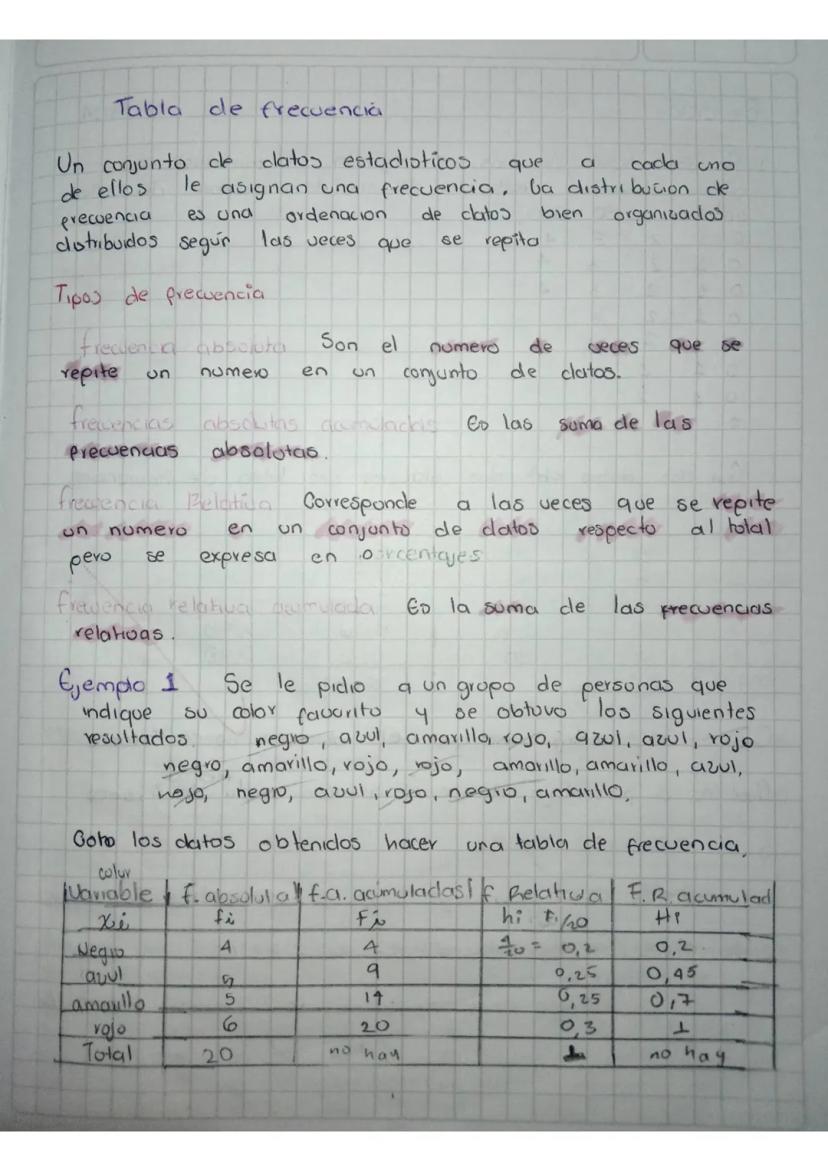 Tabla de frecuencia
Un conjunto de datos estadisticos que a cada uno
de ellos le asignan una frecuencia. La distribucion de
frecuencia es una ordenacion de datos bien organizados
distribuidos según las veces que se repita
Tipos de frecuencia
frecuencia absoluta Son el numero de veces que se
repite un numero en un conjunto de datos.
frecuencias absolutas acumuladas Es las suma de las
frecuencias absolutas.
frecuencia Relativa Corresponde a las veces que se repite
un numero en un conjunto de datos respecto al total
pero se expresa en porcentajes
frecuencia relativa acumulada Es la suma de las frecuencias
relativas.
Ejemplo 1 Se le pidio a un grupo de personas que
indique su color favorito y se obtuvo los siguientes
resultados negro, azul, amarillo, rojo, azul, azul, rojo
negro, amarillo, rojo, rojo, amarillo, amarillo, azul,
rojo, negro, azul, rojo, negro, amarillo.
Con los datos obtenidos hacer una tabla de frecuencia.
color
Variable f. absoluta f.a. acumuladas f Relativa F.R. acumulad
xi fi Fi hi fi/20 Hi
Negro 4 4 4/20 = 0,2 0,2
azul 5 9 0,25 0,45
amarillo 5 14 0,25 0,7
rojo 6 20 0,3 1
Total 20 no hay 1 no hay